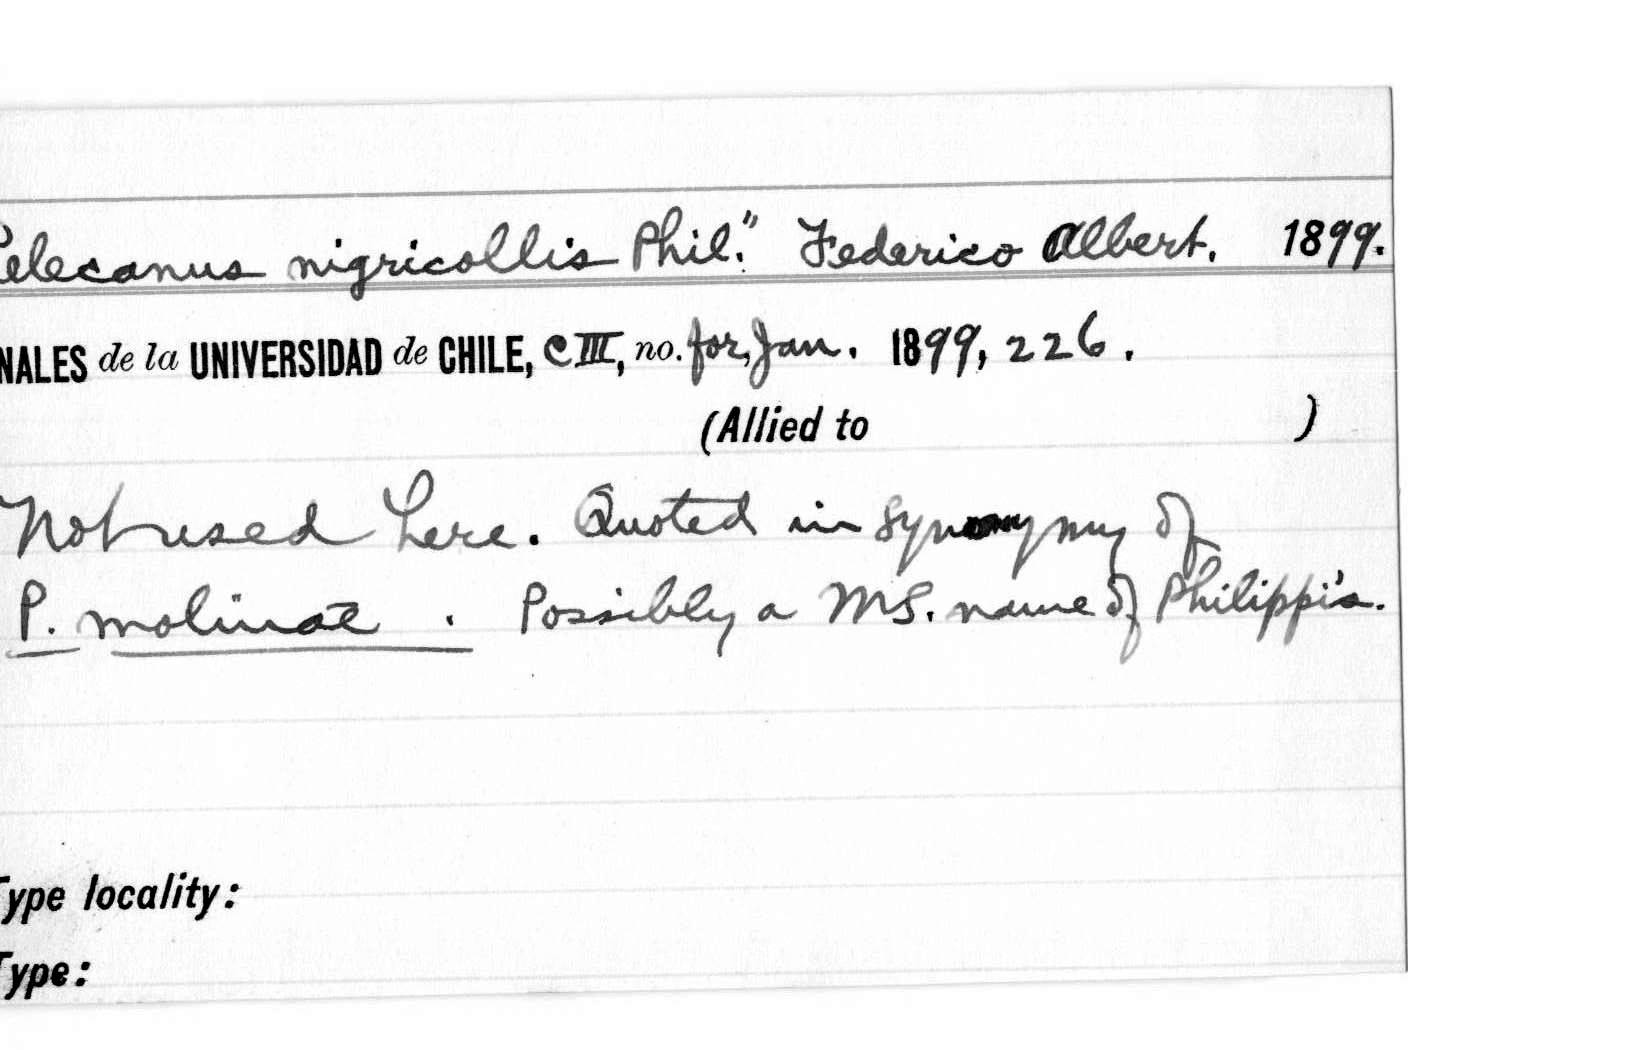 Pelecanus nigricollis Phil." Federico Albert. 1899.
NALES de la UNIVERSIDAD de CHILE, CIII, no. for, Jan. 1899, 226.
(Allied to )
Not used here. Quoted in synonymy of
P. molinae. Possibly a MS. name of Philippi's.
Type locality:
Type: